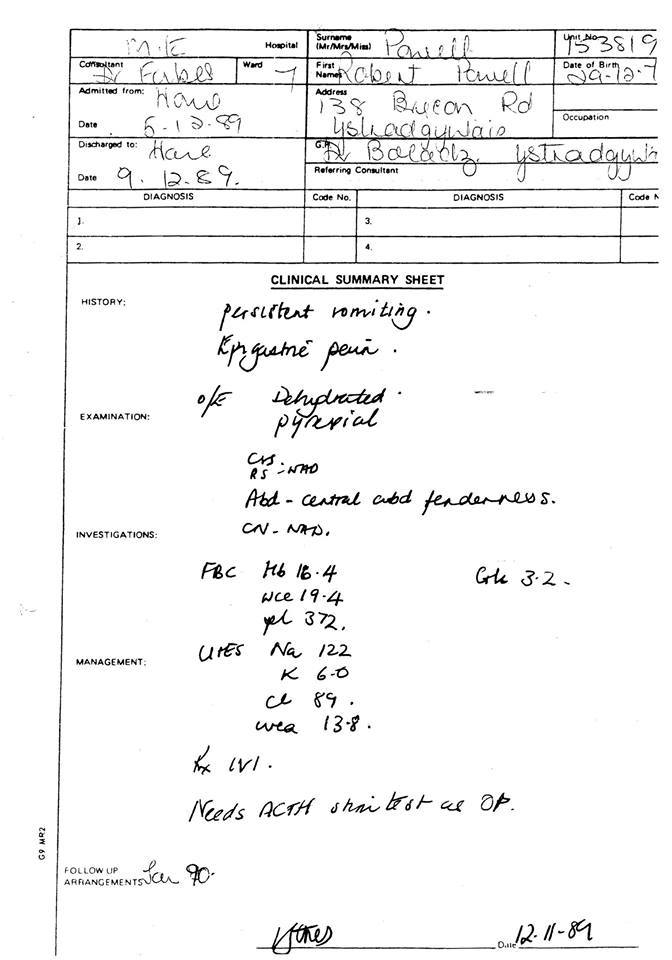 M.E Hospital
Surname (Mr/Mrs/Miss) Powell
Unit No. 153819
Consultant Dr Forbes
Ward 7
First Names Robert Powell
Date of Birth 29-12-7
Admitted from: Home
Date 5-12-89
Address 138 Brecon Rd
Ystradgynlais
Occupation
Discharged to: Home
Date 9.12.89.
G.P. Dr Ystradgynla
Referring Consultant
DIAGNOSIS Code No. DIAGNOSIS Code N
1. 3.
2. 4.
CLINICAL SUMMARY SHEET
HISTORY: persistent vomiting.
Epigastric pain.
EXAMINATION: O/E Dehydrated.
pyrexial
CVS
RS :- NAD
Abd - central abd tenderness.
INVESTIGATIONS: CN - NAD.
FBC Hb 16.4 3.2 -
wce 19.4
pl 372.
MANAGEMENT: U+Es Na 122
K 6.0
Cl 89.
urea 13.8.
Rx IVI.
Needs ACTH test as OP.
FOLLOW UP
ARRANGEMENTS Jan 90.
Date 12-11-89
G9 MR2